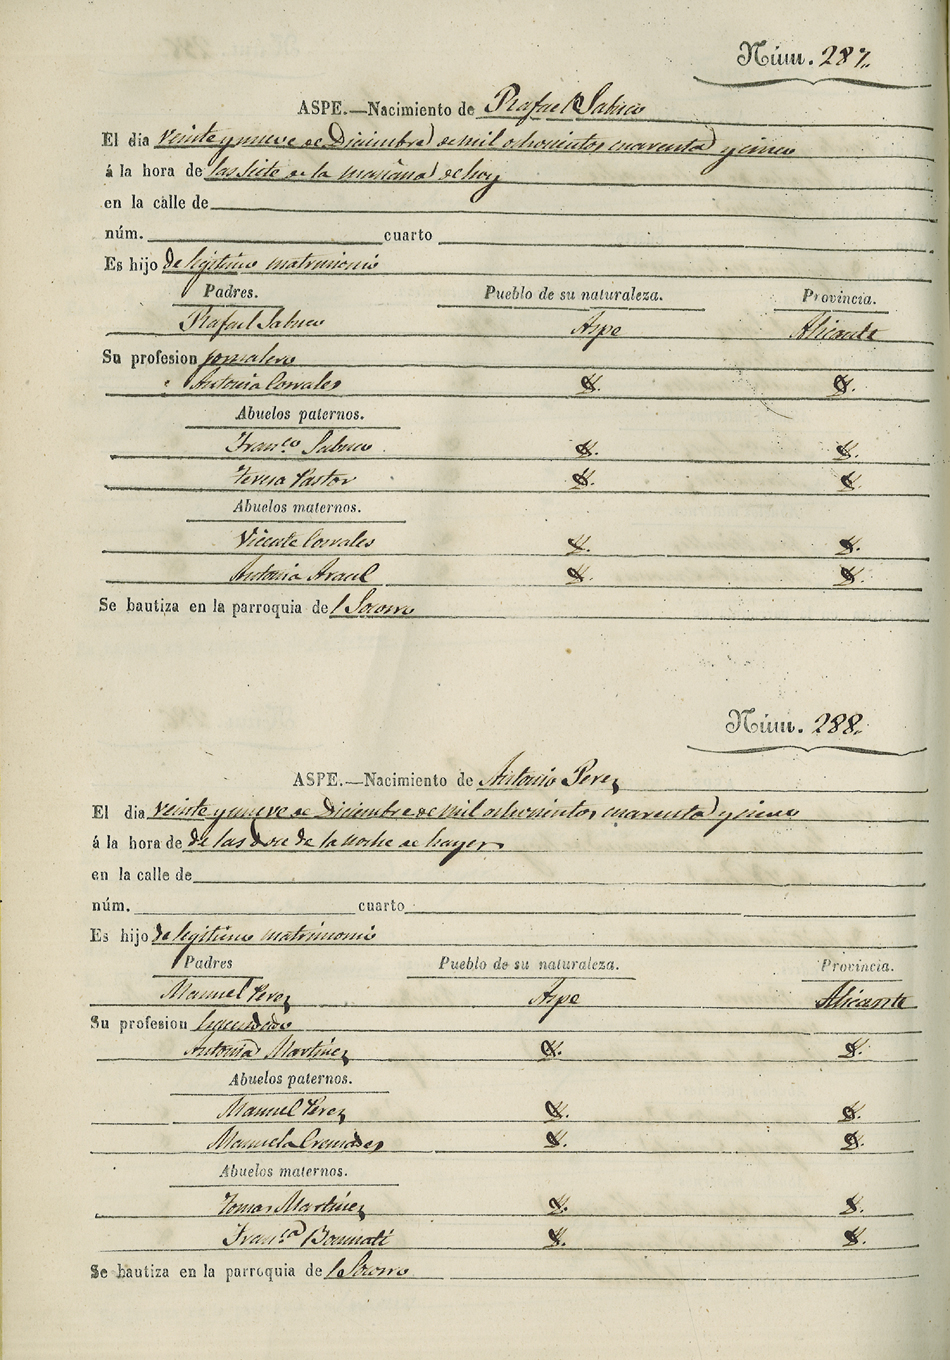 Núm. 287.
ASPE.—Nacimiento de Rafael Sabuco
El dia veinte y nueve de Diciembre de mil ochocientos cuarenta y cinco
á la hora de las siete de la mañana de hoy
en la calle de
núm. cuarto
Es hijo de legitimo matrimonio
Padres. Pueblo de su naturaleza. Provincia.
Rafael Sabuco Aspe Alicante
Su profesion jornalero
Antonia Corrales
Abuelos paternos.
Fran.co Sabuco
Teresa Pastor
Abuelos maternos.
Vicente Corrales
Antonia Aracil
Se bautiza en la parroquia del Socorro
Núm. 288.
ASPE.—Nacimiento de Antonio Perez
El dia veinte y nueve de Diciembre de mil ochocientos cuarenta y cinco
á la hora de de las doce de la noche de hayer
en la calle de
núm. cuarto
Es hijo de legitimo matrimonio
Padres Pueblo de su naturaleza. Provincia.
Manuel Perez Aspe Alicante
Su profesion hacendado
Antonia Martinez
Abuelos paternos.
Manuel Perez
Manuela Cremades
Abuelos maternos.
Tomas Martinez
Fran.ca Bonmati
Se bautiza en la parroquia del Socorro